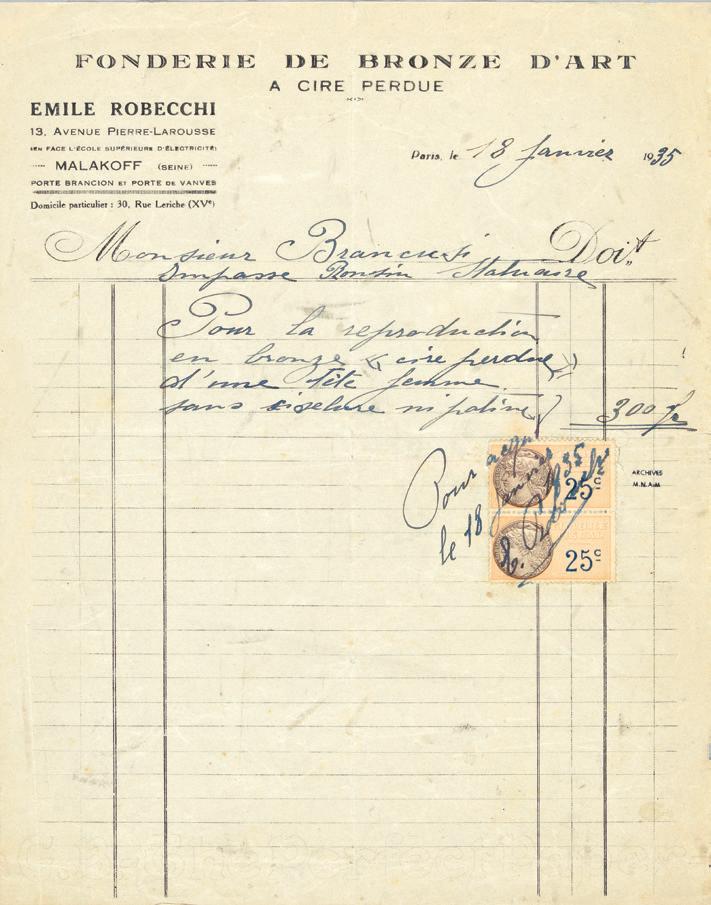 FONDERIE DE BRONZE D'ART
A CIRE PERDUE
EMILE ROBECCHI
13, AVENUE PIERRE-LAROUSSE
(EN FACE L'ÉCOLE SUPÉRIEURE D'ÉLECTRICITÉ)
MALAKOFF (SEINE)
PORTE BRANCION ET PORTE DE VANVES
Domicile particulier : 30, Rue Leriche (XVe)
Paris, le 18 Janvier 1935
Monsieur Brancusi Doit
Impasse Ronsin Statuaire
Pour la reproduction
en bronze (cire perdue)
d'une tête femme
sans ciselure ni patine 300 fr
Pour acquit
le 18 Janvier 1935
ARCHIVES
M.N.A.M
25c
25c